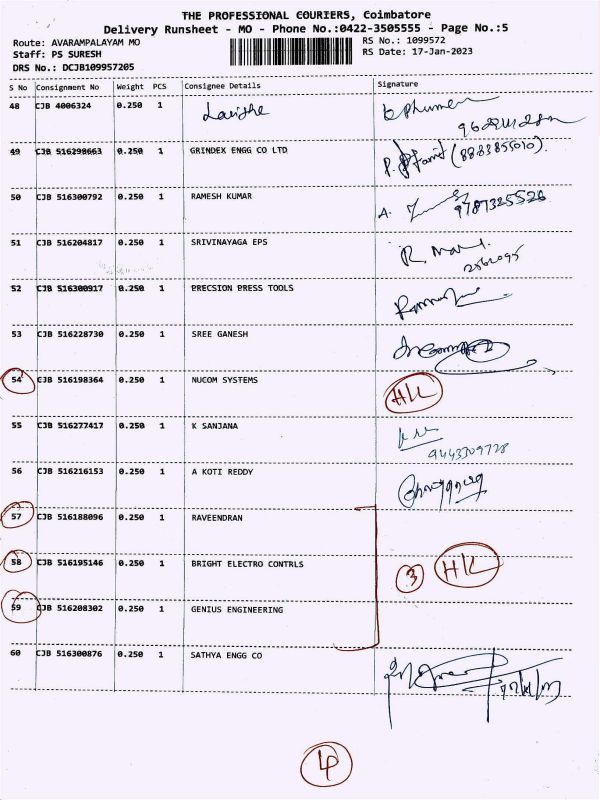 THE PROFESSIONAL COURIERS, Coimbatore
Delivery Runsheet - MO - Phone No.:0422-3505555 - Page No.:5
Route: AVARAMPALAYAM MO
RS No.: 1099572
Staff: PS SURESH
RS Date: 17-Jan-2023
DRS No.: DCJB109957205
S No Consignment No Weight PCS Consignee Details Signature
48 CJB 4006324 0.250 1
49 CJB 516298663 0.250 1 GRINDEX ENGG CO LTD (8883855010).
50 CJB 516300792 0.250 1 RAMESH KUMAR A.
9787325526
51 CJB 516204817 0.250 1 SRIVINAYAGA EPS
52 CJB 516300917 0.250 1 PRECSION PRESS TOOLS
53 CJB 516228730 0.250 1 SREE GANESH
54 CJB 516198364 0.250 1 NUCOM SYSTEMS HK
55 CJB 516277417 0.250 1 K SANJANA
9443309728
56 CJB 516216153 0.250 1 A KOTI REDDY
57 CJB 516188096 0.250 1 RAVEENDRAN
58 CJB 516195146 0.250 1 BRIGHT ELECTRO CONTRLS 3 HK
59 CJB 516208302 0.250 1 GENIUS ENGINEERING
60 CJB 516300876 0.250 1 SATHYA ENGG CO